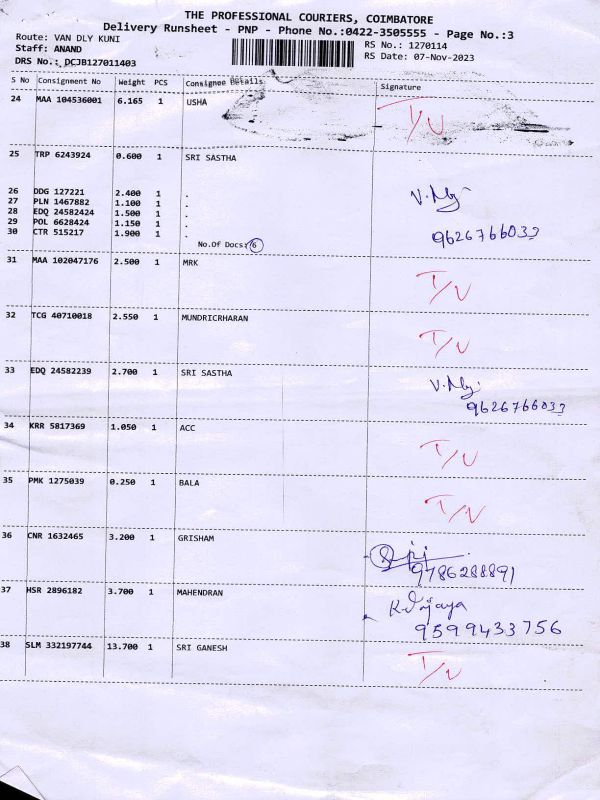 THE PROFESSIONAL COURIERS, COIMBATORE
Delivery Runsheet - PNP - Phone No.:0422-3505555 - Page No.:3
Route: VAN DLY KUNI RS No.: 1270114
Staff: ANAND RS Date: 07-Nov-2023
DRS No.: DCJB127011403
S No Consignment No Weight PCS Consignee Details Signature
24 MAA 104536001 6.165 1 USHA T/U
25 TRP 6243924 0.600 1 SRI SASTHA
26 DDG 127221 2.400 1 .
27 PLN 1467882 1.100 1 .
28 EDQ 24582424 1.500 1 .
29 POL 6628424 1.150 1 .
30 CTR 515217 1.900 1 .
No.Of Docs: 6 9626766033
31 MAA 102047176 2.500 1 MRK T/U
32 TCG 40710018 2.550 1 MUNDRICRHARAN T/U
33 EDQ 24582239 2.700 1 SRI SASTHA
9626766033
34 KRR 5817369 1.050 1 ACC T/U
35 PMK 1275039 0.250 1 BALA T/N
36 CNR 1632465 3.200 1 GRISHAM
9786288891
37 HSR 2896182 3.700 1 MAHENDRAN K.Vijaya
9599433756
38 SLM 332197744 13.700 1 SRI GANESH T/U